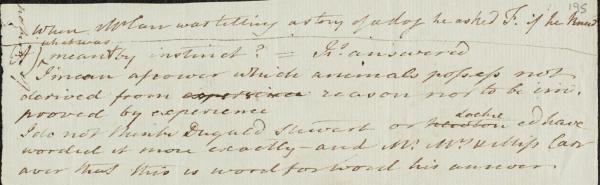 195
When Mr Carr was telling a story of a dog he asked Fs. if he knew
what was
meant by instinct? = Fs. answered
I mean a power which animals possess not
derived from experience reason nor to be im:
proved by experience
I do not think Dugald Stewart or Locke cd have
worded it more exactly - and Mr. Mc Phillip Carr
aver that this is word for word his answer.